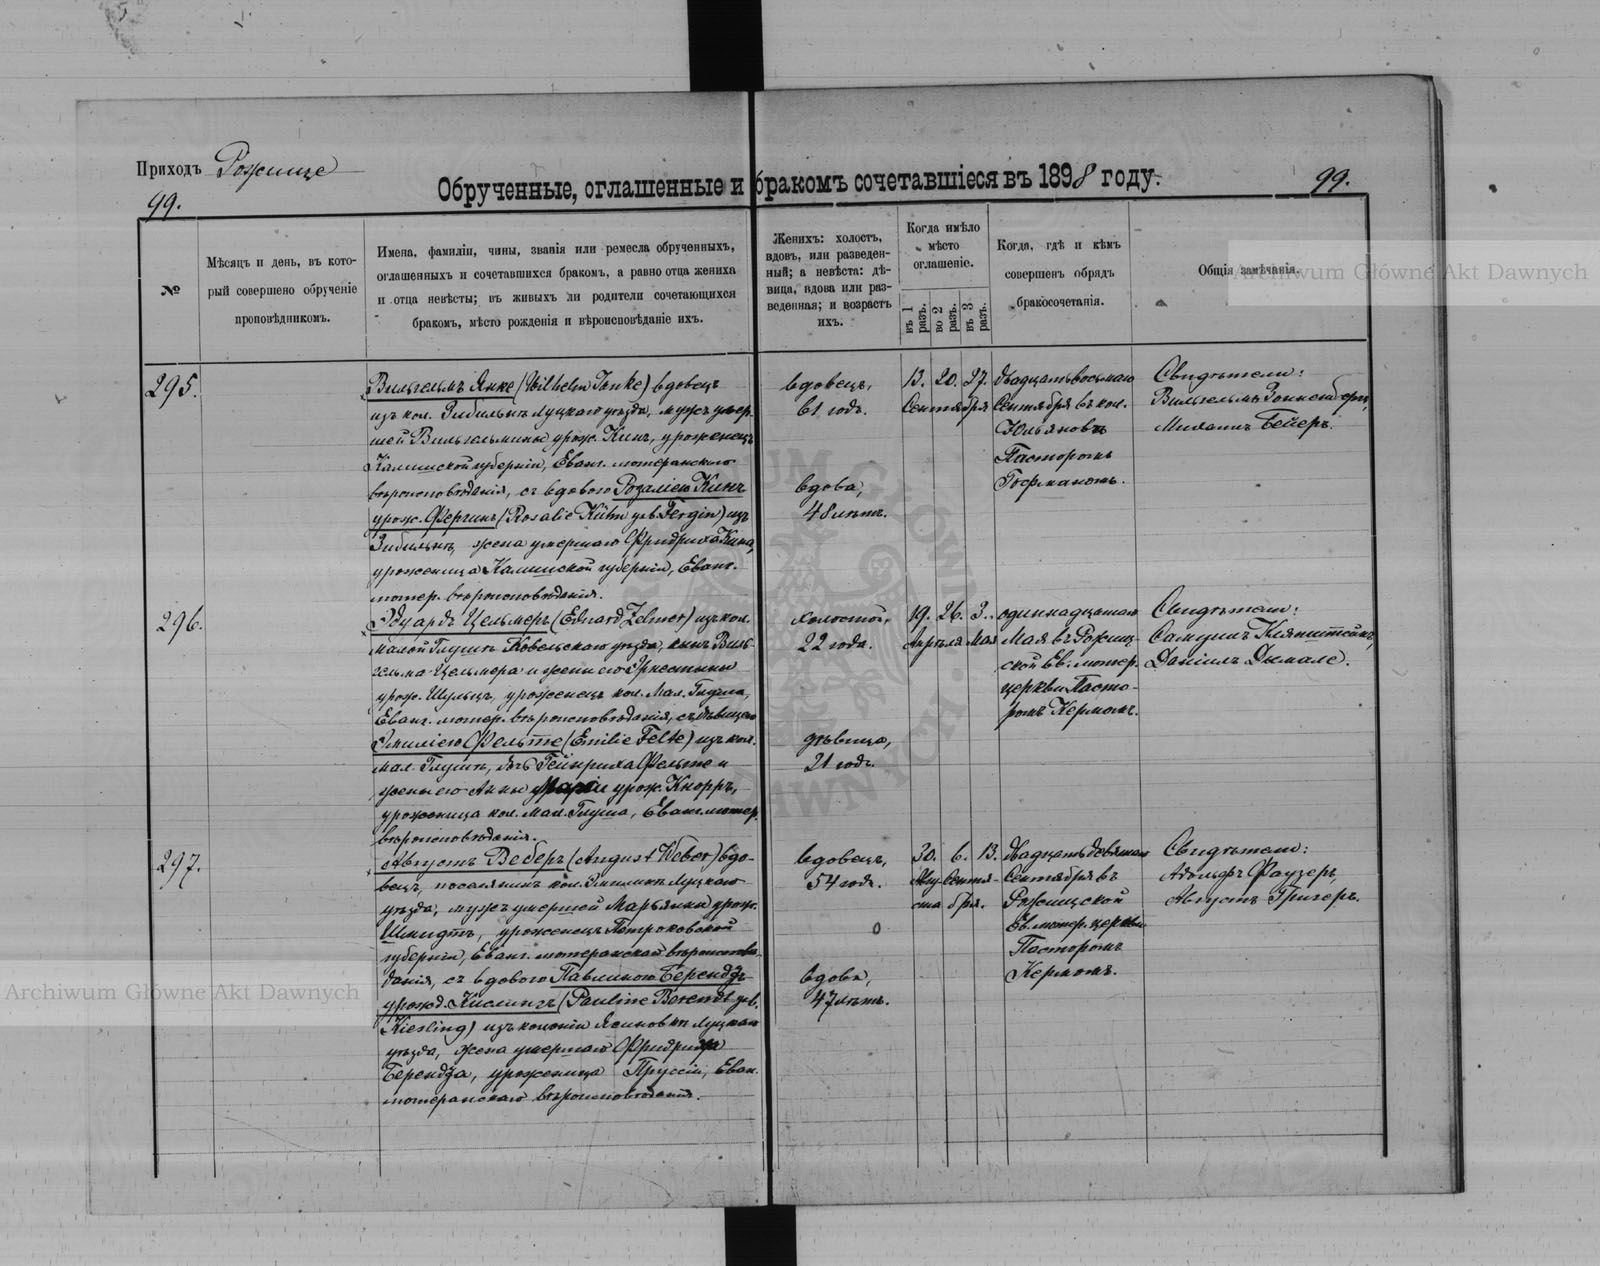 Приходъ Рожище
Обрученные, оглашенные и бракомъ сочетавшіеся въ 1898 году.
99.
99.
№
Мѣсяцъ и день, въ кото-
рый совершено обрученіе
проповѣдникомъ.
Имена, фамиліи, чины, званія или ремесла обрученныхъ,
оглашенныхъ и сочетавшихся бракомъ, а равно отца жениха
и отца невѣсты; въ живыхъ ли родители сочетающихся
бракомъ, мѣсто рожденія и вѣроисповѣданіе ихъ.
Женихъ: холостъ,
вдовъ, или разведен-
ный; а невѣста: дѣ-
вица, вдова или раз-
веденная; и возрастъ
ихъ.
Когда имѣло
мѣсто
оглашеніе.
въ 1 разъ.
во 2 разъ.
въ 3 разъ.
Когда, гдѣ и кѣмъ
совершенъ обрядъ
бракосочетанія.
Общія замѣчанія.
Archiwum Główne Akt Dawnych
295.
Вильгельмъ Янке (Wilhelm Janke) вдовецъ
изъ кол. Луцкаго уѣзда, мужъ умер-
шей Вильгельмины урож. Кинъ, уроженецъ
Калишской губерніи, Еванг. лютеранскаго
вѣроисповѣданія, съ вдовою Розаліею Кинъ
урож. Фергинъ (Rosalie Kühn geb. Fergin) изъ
жена умершаго Фридриха Кина,
уроженица Калишской губерніи, Еванг.
лютер. вѣроисповѣданія.
вдовецъ,
61 годъ.
вдова,
48 лѣтъ.
13. 20. 27.
Сентября
двадцать восьмаго
Сентября въ кол.
Юльяновъ
Пасторомъ
Гофманомъ.
Свидѣтели:
Вильгельмъ Зонненбергъ,
Михаилъ Бейеръ.
296.
Эдуардъ Цельмеръ (Eduard Zelmer) изъ кол.
Малой Глушъ Ковельскаго уѣзда, сынъ Виль-
гельма Цельмера и жены его Эрнестины
урож. Шульцъ, уроженецъ кол. Мал. Глуша,
Еванг. лютер. вѣроисповѣданія, съ дѣвицею
Эмиліею Фельте (Emilie Felte) изъ кол.
Мал. Глушъ, дочь Гейнриха Фельте и
жены его Анны урож. Кнорръ,
уроженица кол. Мал. Глуша, Еванг. лютер.
вѣроисповѣданія.
холостой,
22 года.
дѣвица,
21 годъ.
19. 26. 3.
Апрѣля Мая
одиннадцатаго
Мая въ Рожищ-
ской Ев. лютер.
церкви Пасто-
ромъ Кермомъ.
Свидѣтели:
Самуилъ Кляпштейнъ,
Даніилъ Дымале.
297.
Августъ Веберъ (August Weber) вдо-
вецъ, поселянинъ кол. Эмилинъ Луцкаго
уѣзда, мужъ умершей Марьянны урож.
Шмидтъ, уроженецъ Петроковской
губерніи, Еванг. лютеранской вѣроисповѣ-
данія, съ вдовою Павлиною Берендъ
урожд. Кислингъ (Pauline Berendt geb.
Kiesling) изъ колоніи Ясиновкъ Луцкаго
уѣзда, жена умершаго Фридриха
Беренда, уроженица Пруссіи, Еван.
лютеранскаго вѣроисповѣданія.
вдовецъ,
54 года.
вдова,
47 лѣтъ.
30. 6. 13.
Авгу- Сентя-
ста бря.
двадцать девятаго
Сентября въ
Рожищской
Ев. лютер. церкви
Пасторомъ
Кермомъ.
Свидѣтели:
Адольфъ Фаузеръ,
Августъ Григеръ.
Archiwum Główne Akt Dawnych